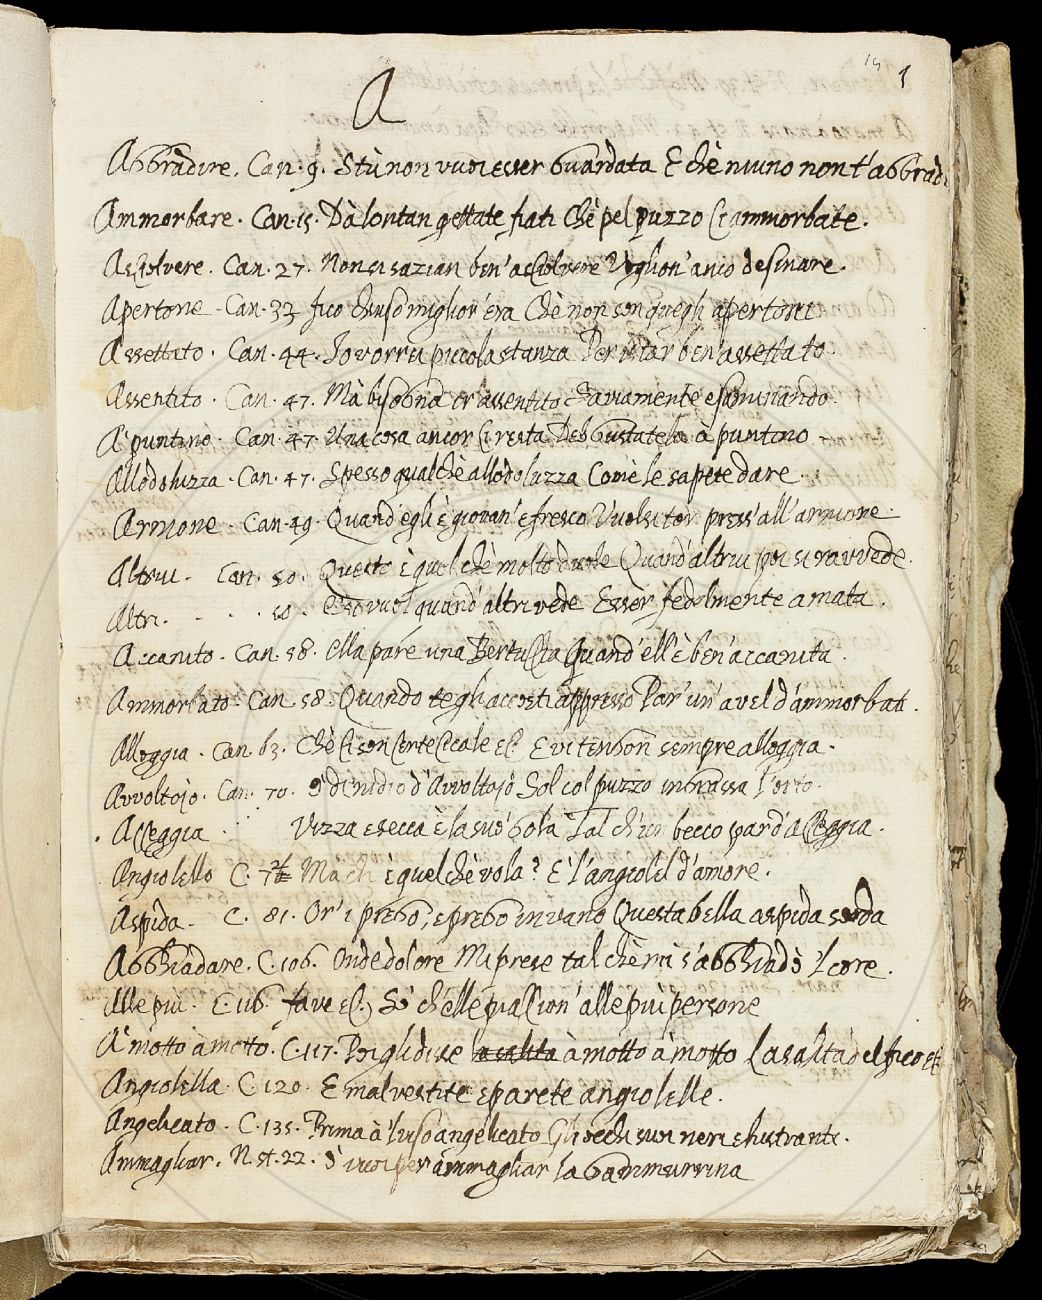 14 1
A
Abbràdire. Can. 9. Stù non vuoi esser guardata E chè niuno non t'abbràd
Ammorbare. Can. 15. Dà lontan gettate fiati Chè pel puzzo ci ammorbate.
Asciolvere. Can. 27. Non si sazian ben' asciolvere Voglion' anco desinare.
Apertone. Can. 33 fico chiuso miglior' era Chè non son quegli apertoni
Assettato. Can. 44. Io vorrei piccola stanza Per istar ben' assettato.
Assentito. Can. 47. Mà bisogna ir assentito Saviamente esaminando.
À puntino. Can. 47. Una cosa ancor ci resta Deh gustatela à puntino
Allodoluzza. Can. 47. Spesso qualchè allodoluzza Come le sapete dare.
Armone. Can. 49. Quand' egli è giovan' e fresco Vuolsi tor press' all' armone.
Altrui. Can. 50. Questo è quel chè molto duole Quand' altrui poi si ravvede.
Altri. . . . 50. vuol quand' altri vede Esser fedelmente amata.
Accanito. Can. 58. Ella pare una Bertuccia Quand' ell' è ben' accanita.
Ammorbato. Can. 58. Quando te gli accosti appresso Par' un' avel d' ammorbati.
Alloggia. Can. 63. Chè ci son certe cicale &c. E vi tengon sempre alloggia.
Avvoltojo. Can. 70. O di nidio d' Avvoltojo Sol col puzzo ingrassa l' orto.
Acceggia . . Vizza e secca è la suo' gola Tal ch' un becco par d' acceggia.
Angiolello C. Mà ch' è quel chè vola? E' l' angiolel d' amore.
Aspida. C. 81. Or' i priego, e priego in vano Questa bella aspida sorda
Abbhiadare. C. 106. Onde dolore Mi prese tal chè mi s' abbhiadò 'l core.
Alle più. C. 116. fave &c. Sò ch' elle piaccion' alle più persone
À motto à motto. C. 117. Poi gli disse la salita à motto à motto La salita del fico &c
Angiolella. C. 120. E mal vestite e parete angiolelle.
Angelicato. C. 135. Prima à 'l viso angelicato Gli occhi suoi neri e lustranti.
Ammagliar. N. st. 22. S' i vuoi per ammagliar la gammurrina